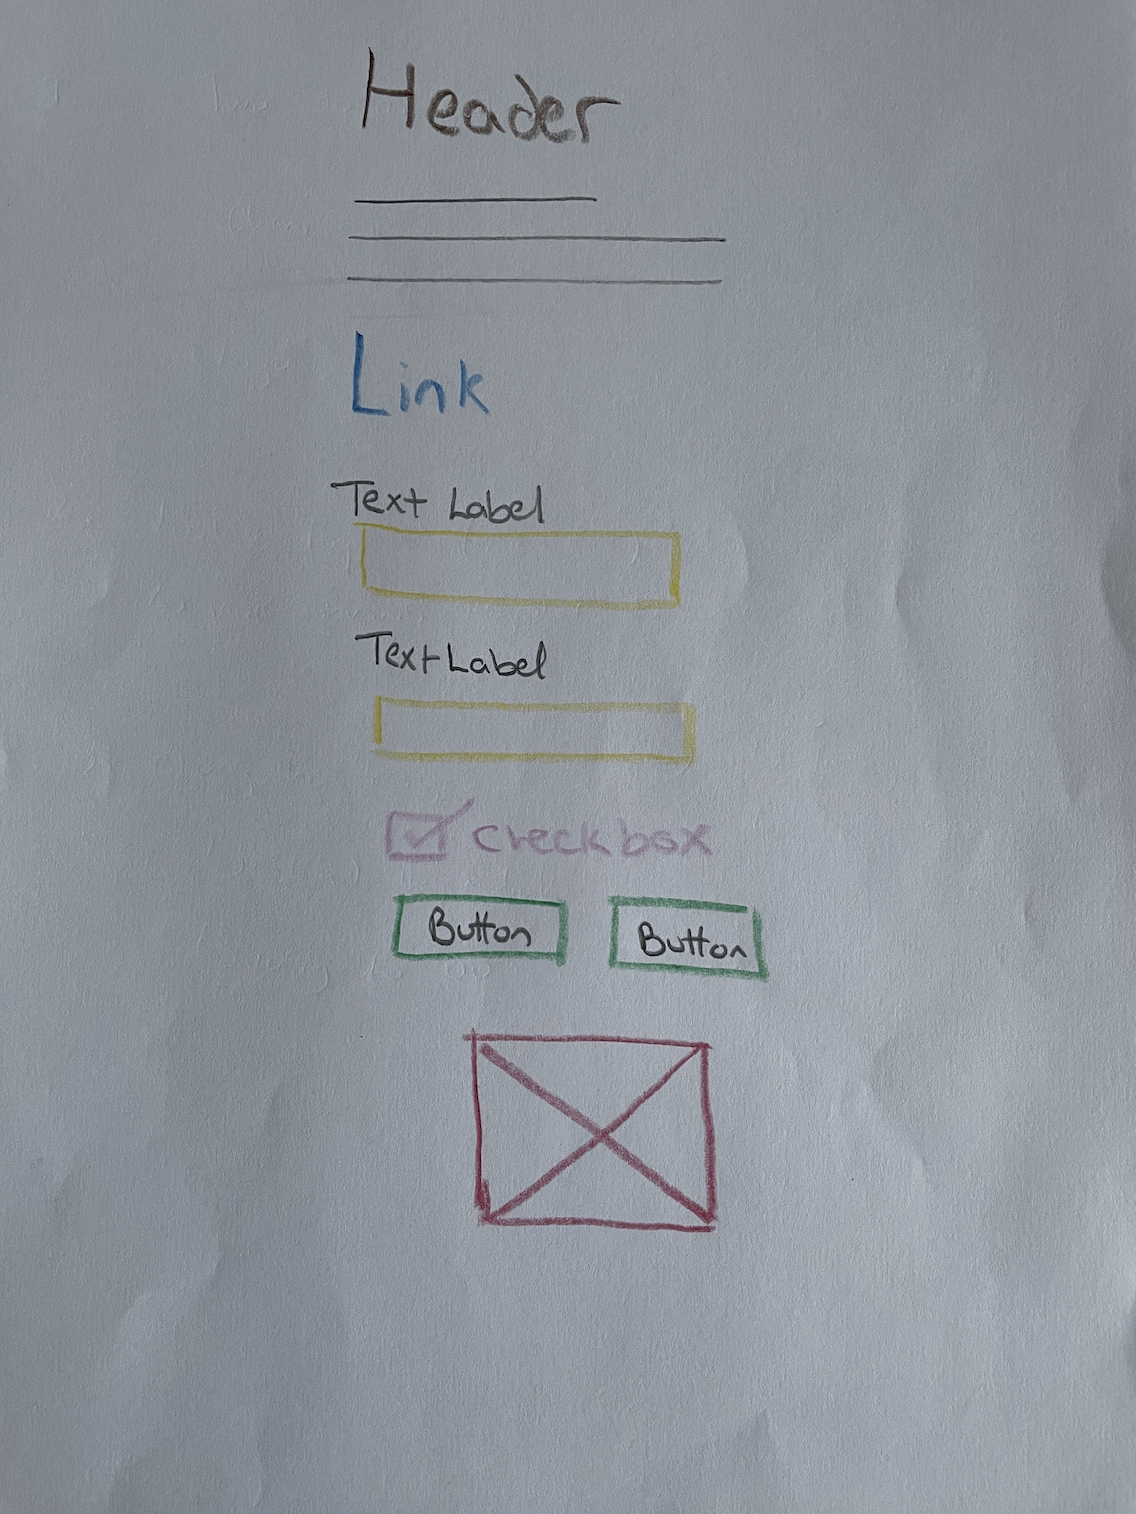 Header
Link
Text Label
Text Label
checkbox
Button Button